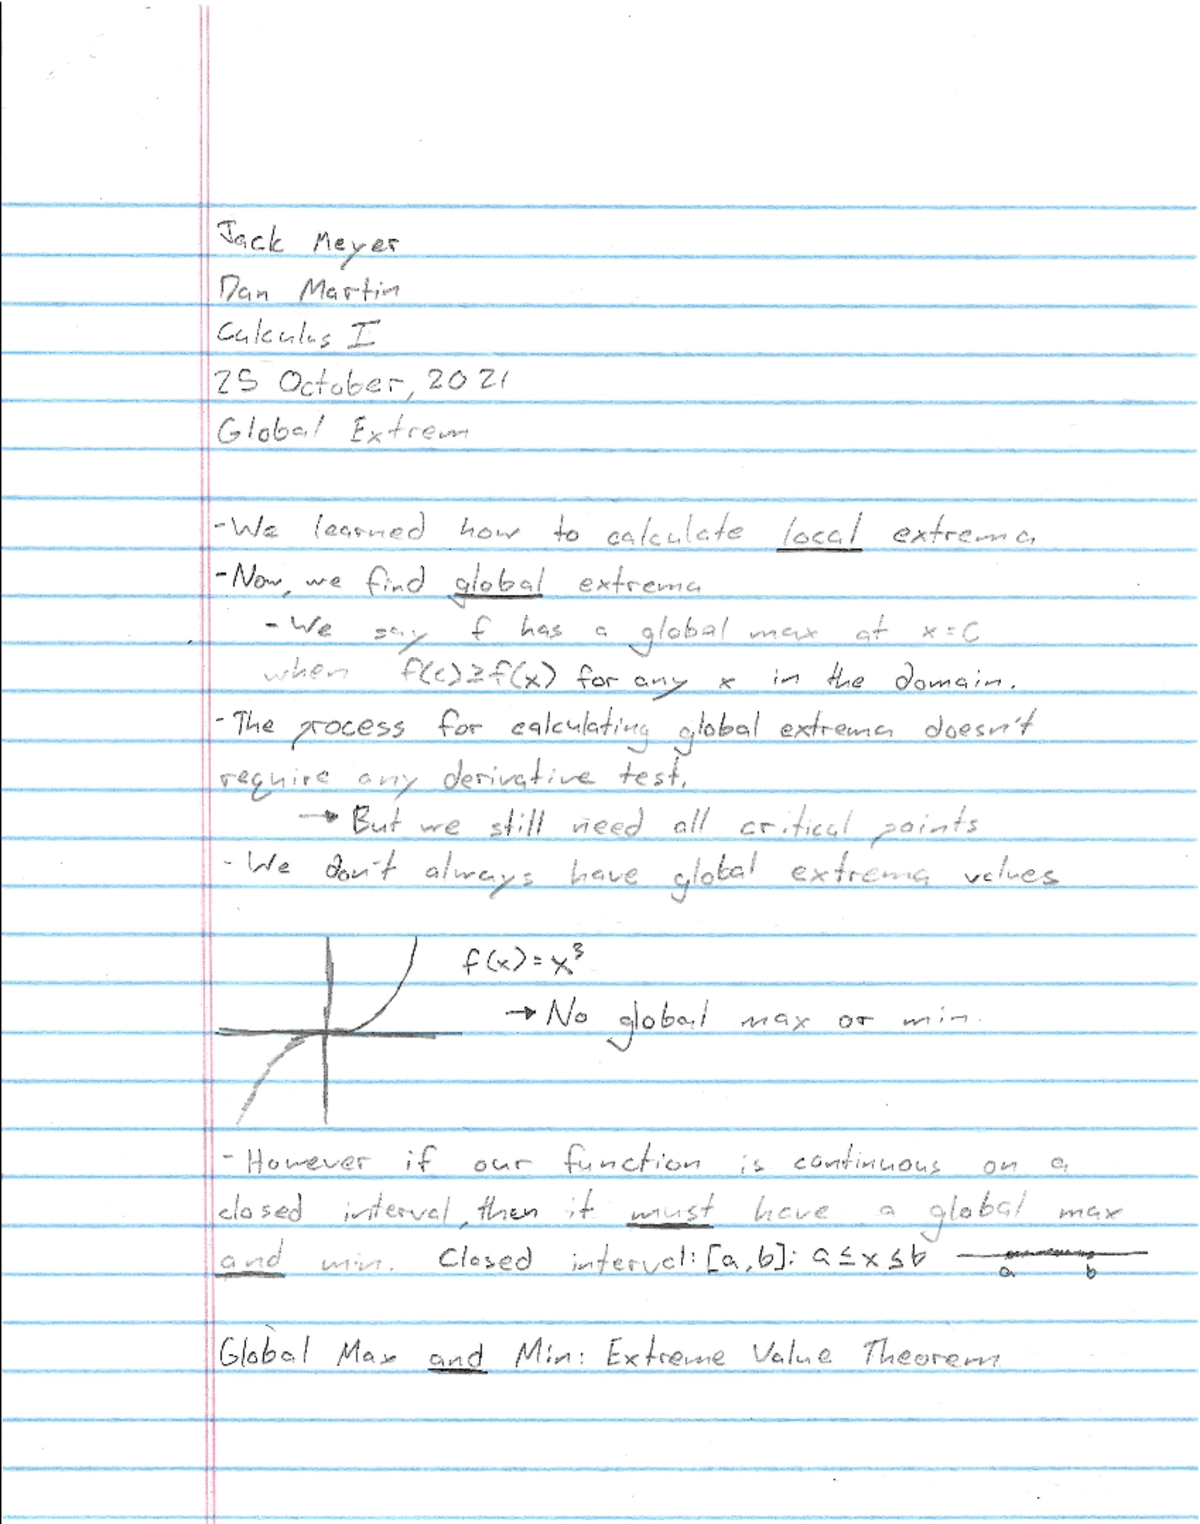 Jack Meyer
Dan Martin
Calculus I
25 October, 2021
Global Extrem
-We learned how to calculate local extrema
-Now, we find global extrema
-We say f has a global max at x=c
when f(c)≥f(x) for any x in the domain.
-The process for calculating global extrema doesn't
require any derivative test.
→ But we still need all critical points
-We don't always have global extrema values
f(x)=x³
→ No global max or min.
-However if our function is continuous on a
closed interval, then it must have a global max
and min. Closed interval: [a,b]: a≤x≤b
a b
Global Max and Min: Extreme Value Theorem